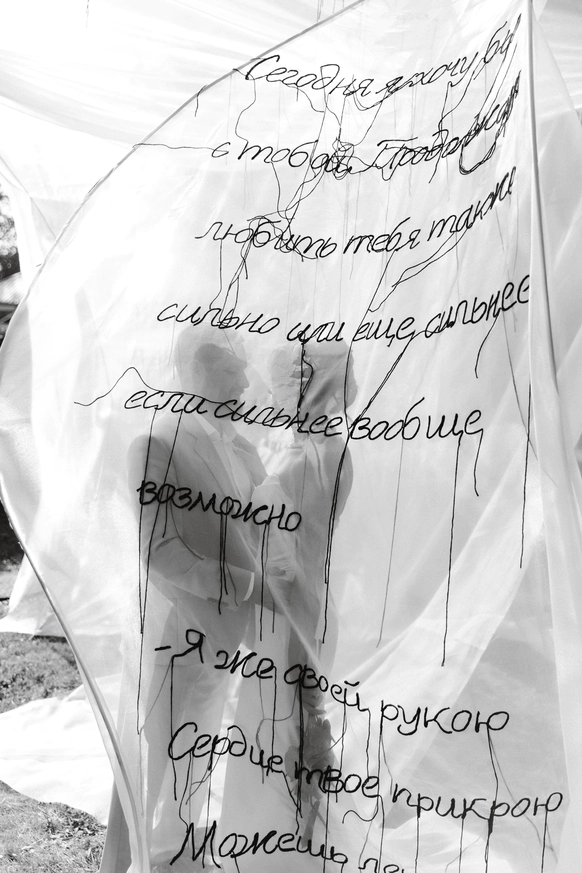 Сегодня я хочу бы
с тобой. Продолжая
любить тебя также
сильно или еще сильнее
если сильнее вообще
возможно
-Я же своей рукою
Сердце твое прикрою
Можешь